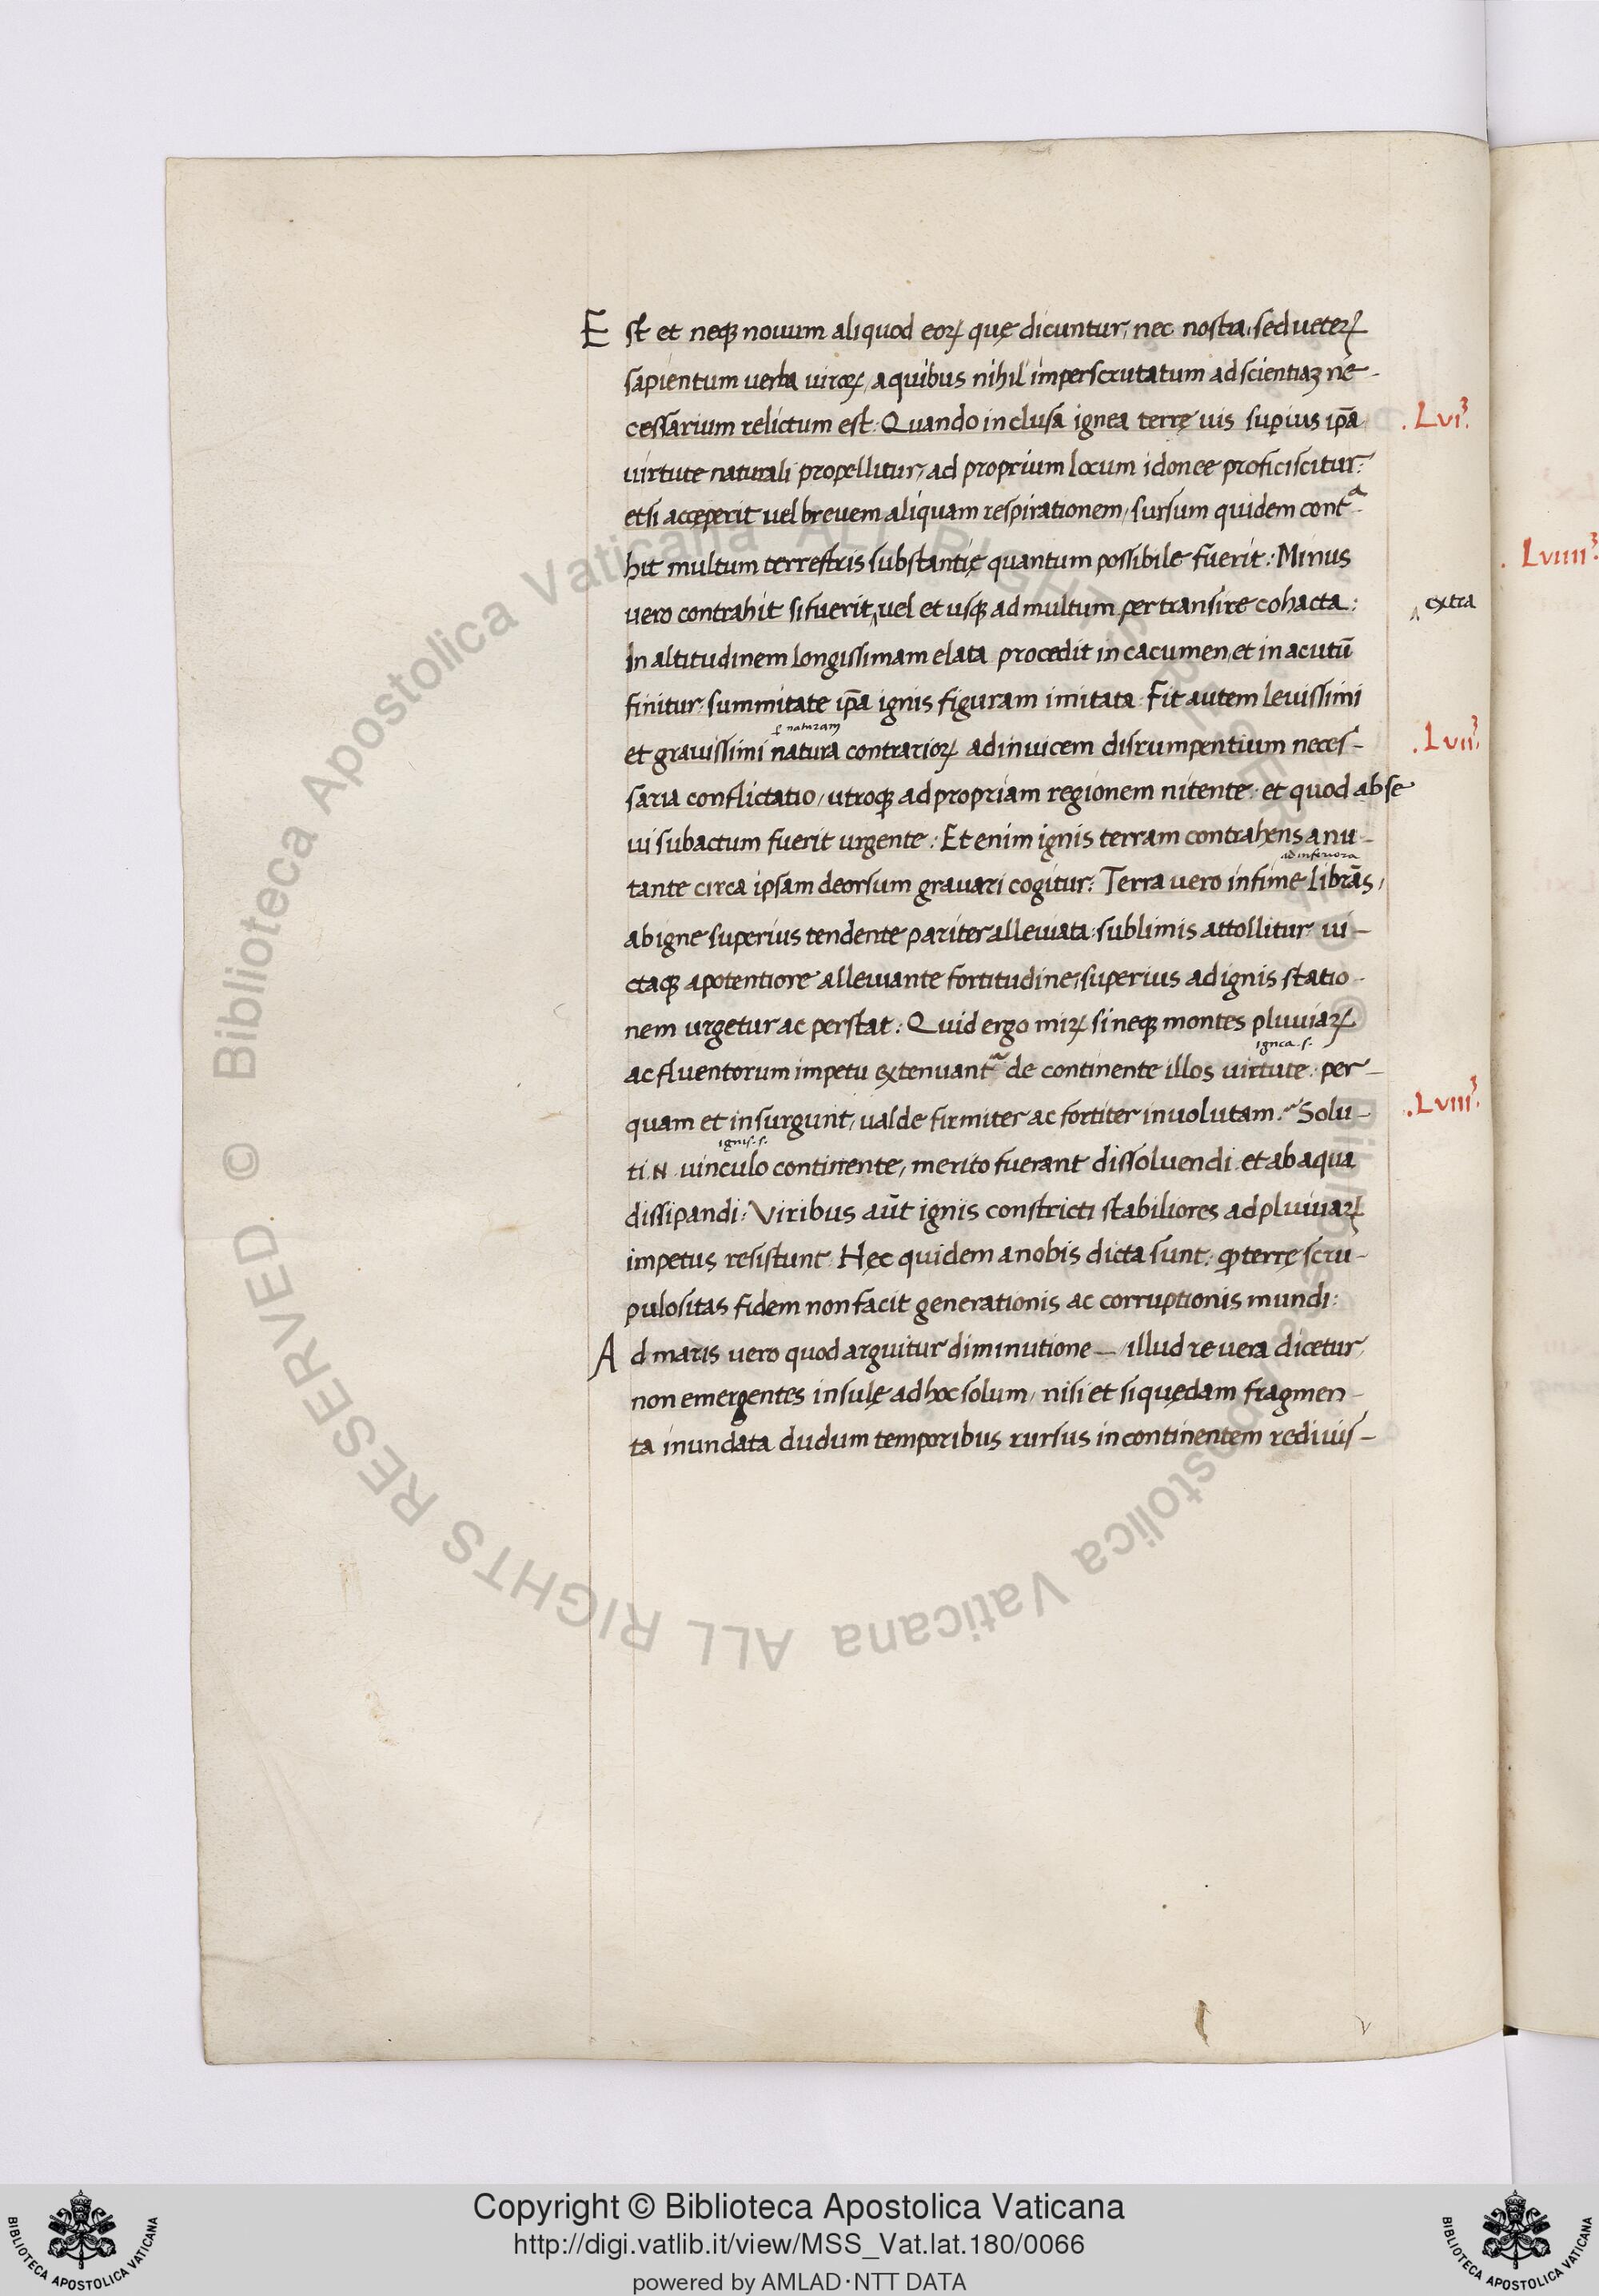 Est et neqꝫ novum aliquod eoꝝ quę dicuntur, nec nostra, sed veteꝝ
sapientum verba viroꝝ, a quibus nihil imperscrutatum ad scientiaꝫ ne-
cessarium relictum est. Quando inclusa ignea terrę vis suꝑius ip̄a .Lvi.
virtute naturali propellitur, ad proprium locum idonee proficiscitur:
etsi acceperit vel brevem aliquam respirationem, sursum quidem contᵃ-
hit multum terrestris substantię quantum possibile fuerit: Minus
vero contrahit si fuerit‸ vel et usqꝫ ad multum pertransire cohacta: ‸ extra
In altitudinem longissimam elata procedit in cacumen, et in acutū
finitur: summitate ip̄a ignis figuram imitata. Fit autem levissimi
ꝑ naturam
et gravissimi natura contrarioꝝ ad invicem disrumpentium neces- .Lvii.
saria conflictatio, utroqꝫ ad propriam regionem nitente: et quod ab se
vi subactum fuerit urgente: Et enim ignis terram contrahens a nu-
ad inferiora
tante circa ipsam deorsum gravari cogitur: Terra vero infime librās,
ab igne superius tendente pariter alleviata: sublimis attollitur: vi-
ctaqꝫ a potentiore alleviante fortitudine, superius ad ignis statio-
nem urgetur ac perstat: Quid ergo miꝝ si neqꝫ montes pluviaꝝ
ignea .s.
ac fluentorum impetu extenuantᵃ de continente illos virtute: per-
quam et insurgunt, valde firmiter ac fortiter involutam. Solu- .Lviii.
ignis .s.
ti .N. vinculo continente, merito fuerant dissolvendi et ab aqua
dissipandi: Viribus aūt ignis constricti stabiliores ad pluviaꝝ
impetus resistunt. Hęc quidem a nobis dicta sunt: ꝙ terrę scru-
pulositas fidem non facit generationis ac corruptionis mundi:
Ad maris vero quod arguitur diminutione — illud re vera dicetur,
non emergentes insulę ad hoc solum, nisi et si quędam fragmen-
ta inundata dudum temporibus rursus in continentem redivis-
.Lviiii.
Copyright © Biblioteca Apostolica Vaticana
http://digi.vatlib.it/view/MSS_Vat.lat.180/0066
powered by AMLAD·NTT DATA
BIBLIOTECA APOSTOLICA VATICANA
BIBLIOTECA APOSTOLICA VATICANA
© Biblioteca Apostolica Vaticana ALL RIGHTS RESERVED © Biblioteca Apostolica Vaticana ALL RIGHTS RESERVED